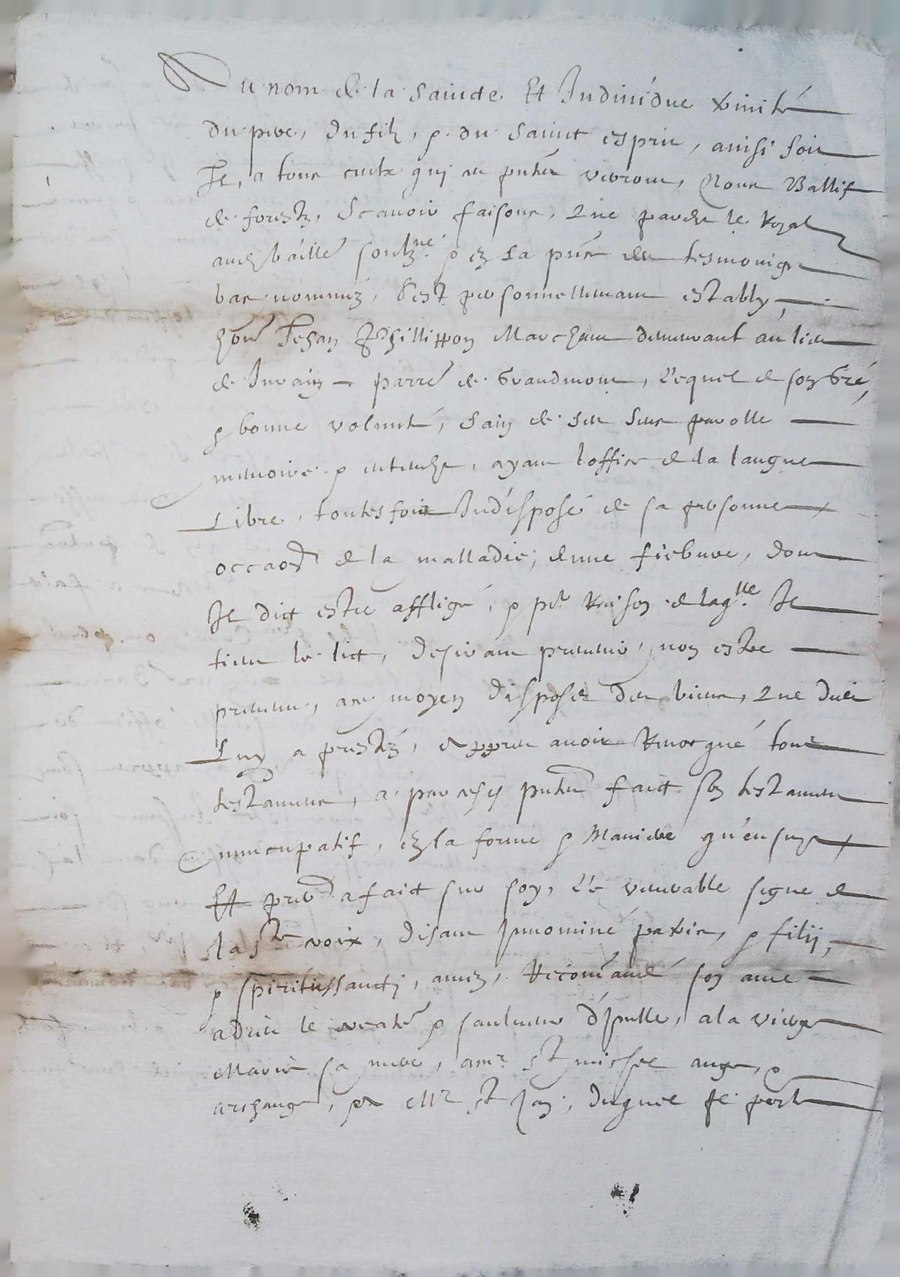 Au nom de la saincte Et Individue trinité
du pere, du filz, & du sainct esprit, ainsi soit
Il, a tous ceulx qui ces pntes verront, Nous Baillif
de forestz, Scavoir faisons, que pardevt le Royal
soubzné & en La pnce des tesmoings
bas nommez, s'est personnellement estably
honn Jehan Phillippon Marchant demeurant au lieu
de parre de Grandmont, Lequel de son Gré,
& bonne volunté, sain de ses sens parolle
memoire & entendt, ayant l'office de la langue
Libre, toutesfois Indisposé de sa personne
occaon de la malladie, d'une fiebvre, dont
Il dict estre affligé, & pr Raison de laqlle Il
tient le lict, desirant prevenir, non estre
prevenu, au moyen disposer des biens, que dieu
Luy a prestéz, & appres avoir Revocqué tous
testamens, a par cesy faict son testament
nuncupatif, en la forme & Maniere qu'ensuyt
Et a faict sur soy, Le venerable signe de
la ste croix, disant Innomine patris, & filij,
& spiritussancti, amen, Recommandé son ame
a dieu le & saulveur d'Icelle, a la vierge
Marie sa mere, a mr st michel ange, &
archange, & Mr st Jan, duquel Il porte